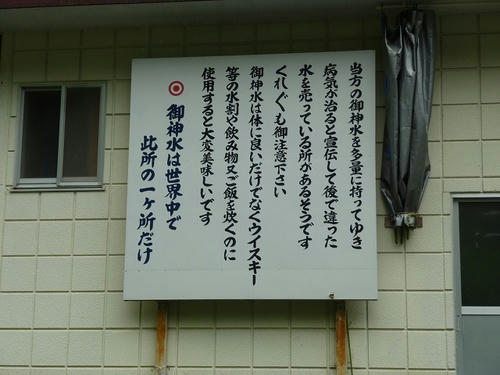 当方の御神水を多量に持ってゆき
病気が治ると宣伝して後で違った
水を売っている所があるそうです
くれぐも御注意下さい
御神水は体に良いだけでなくウイスキー
等の水割や飲み物又ご飯を炊くのに
使用すると大変美味しいです
◉御神水は世界中で
此所の一ヶ所だけ